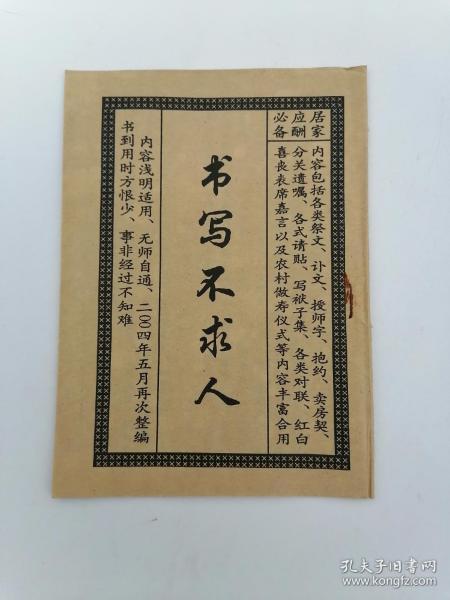 居家
应酬
必备
内容包括各类祭文、讣文、授师字、抱约、卖房契、
分关遗嘱、各式请贴、写袱子集、各类对联、红白
喜丧表席嘉言以及农村做寿仪式等内容丰富合用
书写不求人
内容浅明适用、无师自通、二〇〇四年五月再次整编
书到用时方恨少、事非经过不知难
孔夫子旧书网
www.kongfz.com